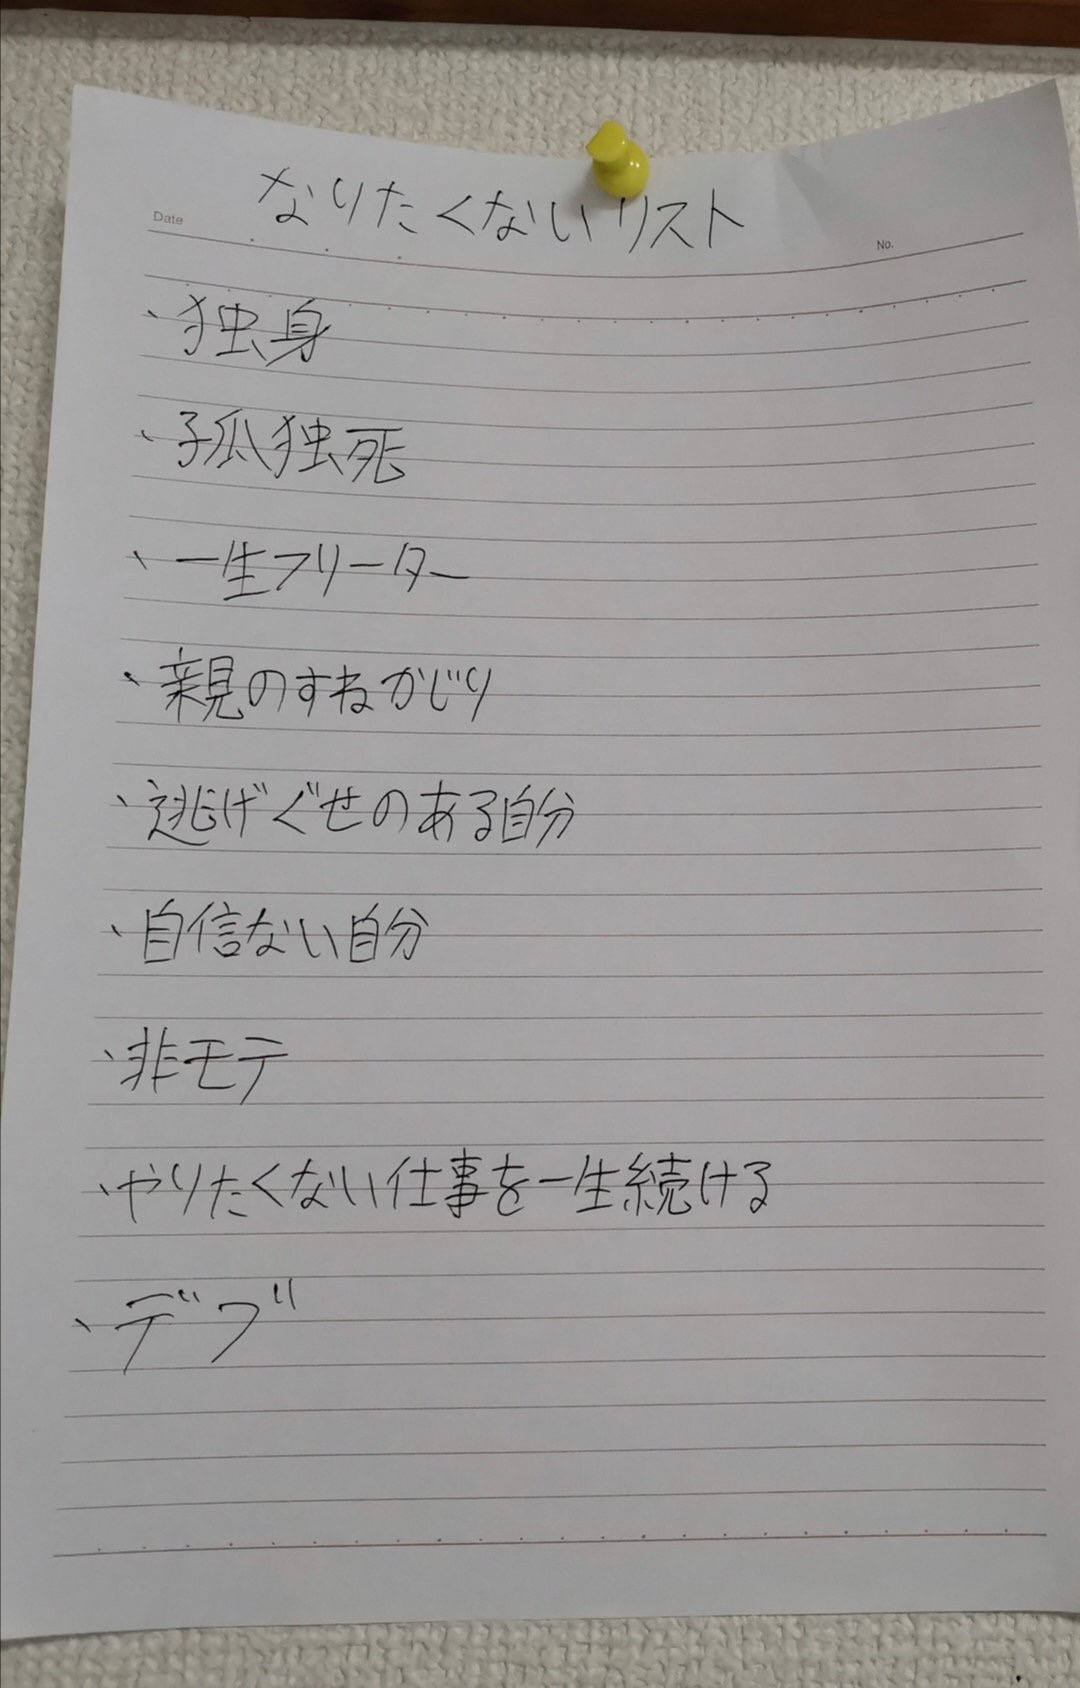 なりたくないリスト
Date
No.
・独身
・孤独死
・一生フリーター
・親のすねかじり
・逃げぐせのある自分
・自信ない自分
・非モテ
・やりたくない仕事を一生続ける
・デブ